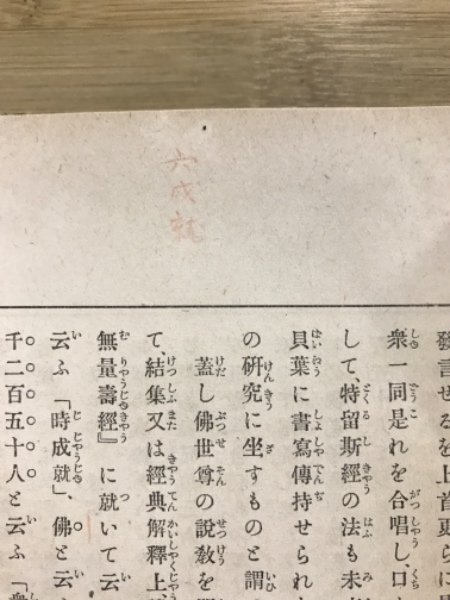 六成就
發言せるを上首更らに
衆一同是れを合唱し、口
して、特留斯經の法も未
貝葉に書寫傳持せられ
の硏究に坐すものと謂
蓋し佛世尊の說敎を
て、結集又は經典解釋上、
無量壽經』に就いて云
云ふ「時成就」、佛と云
千二百五十人と云ふ「衆